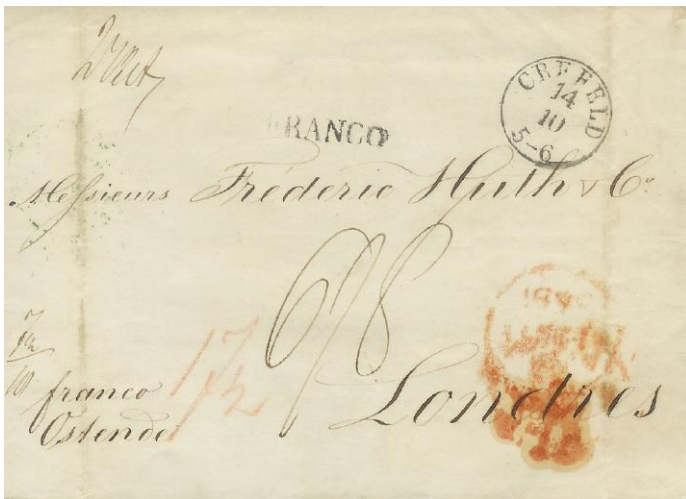 CREFELD
14
10
5-6
FRANCO
Messieurs Fréderic Huth & Co
6/8
17½
franco
Ostende
Londres